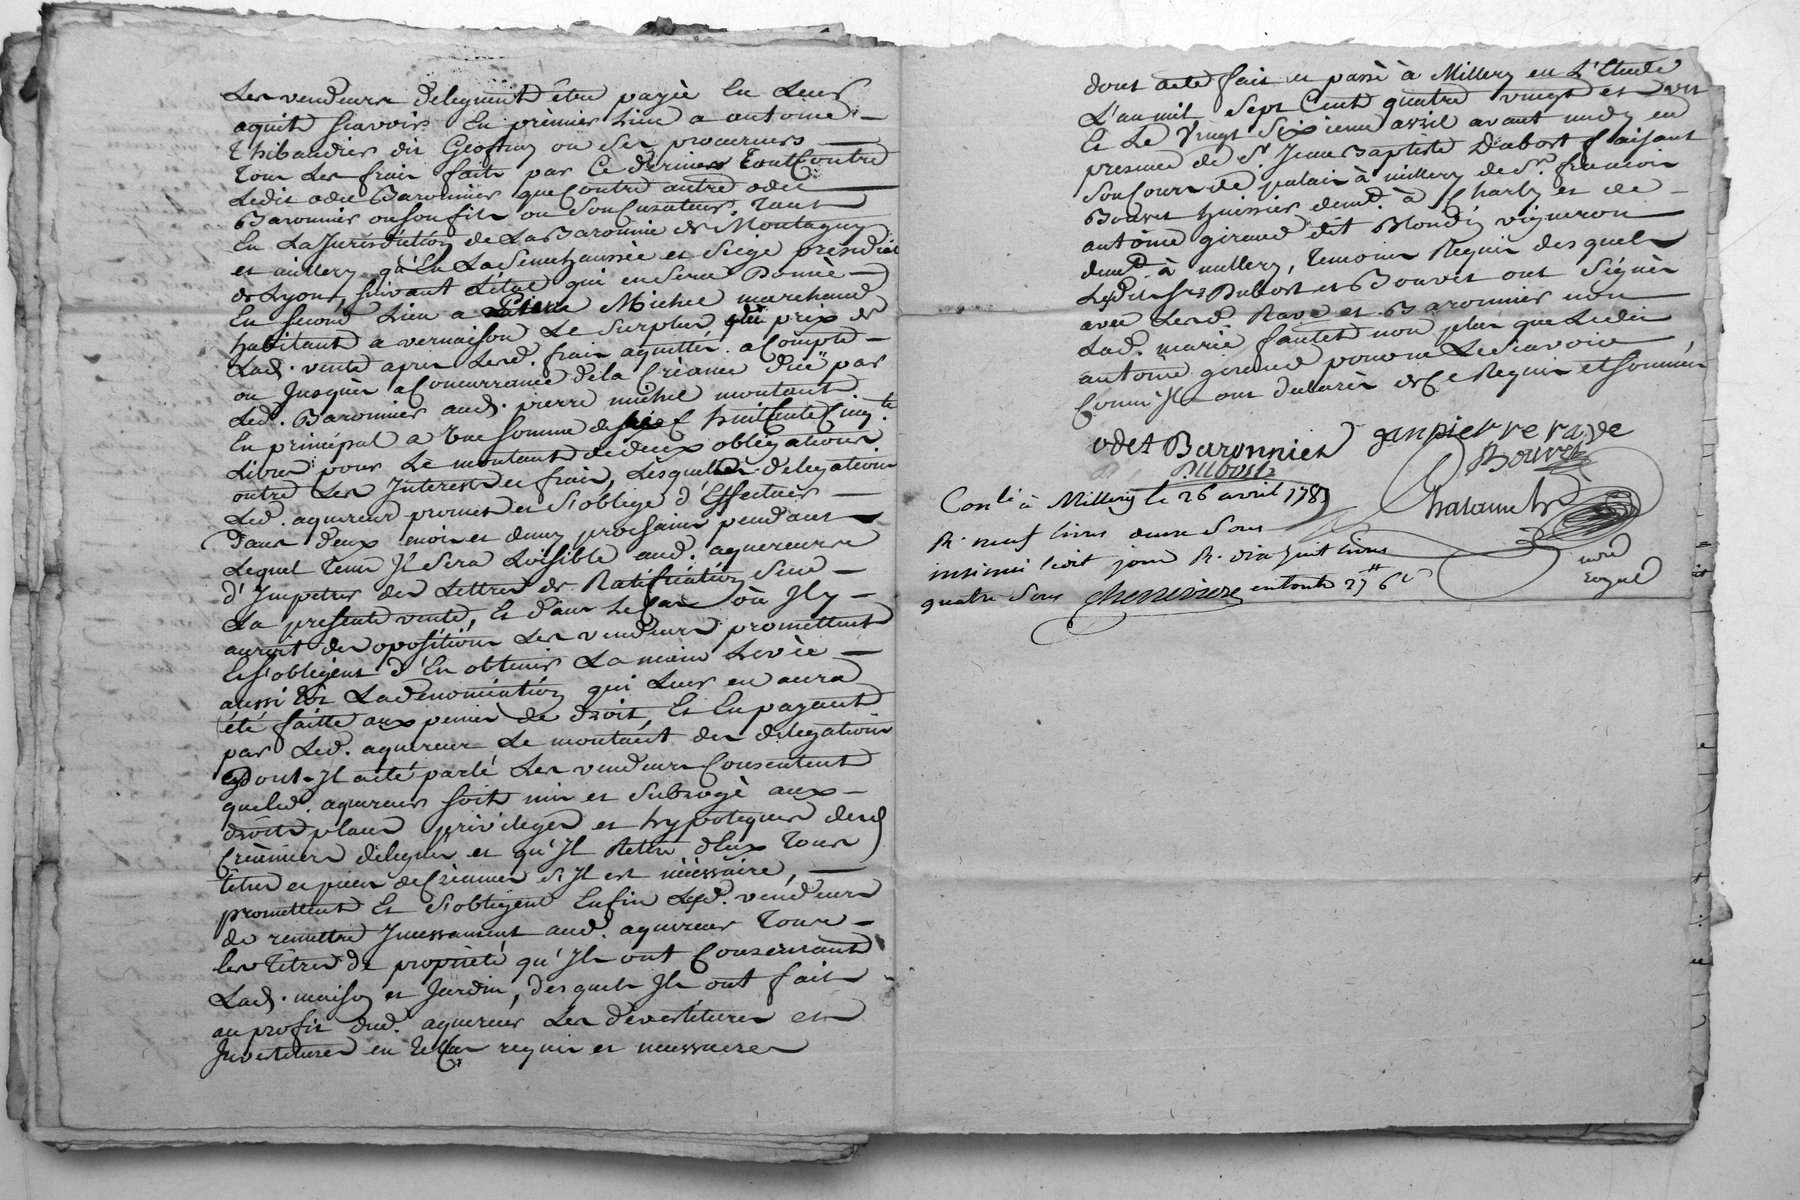 Les vendeurs deleguent être payée en Leur
aquit scavoir En prèmier Lieu a antoine
Thibaudier dit Geoffray ou ses procureurs
Tous Les frais faits par Ce dernier tout Contre
Ledit odet Baronnier que Contre autre odet
Baronnier ou son fils ou son Curateur, tant
En La Jurisdiction de La Baronnie de Montagny
et millery qu'En La Senechaussée et siege presidial
de Lyon, suivant L'état qui en sera Donné
En second Lieu a Michel marchand
habitant a vernaison Le surplus du prix de
Lad. vente apres Lesd. frais aquittes acompte
ou Jusques a Concurrance de la Créance düe par
Led. Baronnier aud. pierre michel montant
En principal a une somme de huit Cents Cinq.te
Livres pour Le montant de deux obligations
outre Les Interets et frais, Lesquelles delegations
Led. aquereur promet et s'oblige d'Effectuer
Dans deux mois et demy prochains pendant
Lequel tems Il sera Loisible aud. aquereur
d'Impetrer des Lettres de Ratification sur
La presente vente, Et dans Le Cas où Il y
auroit des opositions Les vendeurs promettent
Et s'obligent d'En obtenir La main Levée
aussi tôt La denonciation qui Leur en aura
été faitte aux peines de droit, Et En payant
par Led. aquereur Le montant des délegations
Dont Il a été parlé Les vendeurs Consentent
que Led. aquereur soit mis et subrogé aux
droits places privileges et hypoteques desd
Créanciers délegués et qu'Il Retire d'Eux tous
titres et pieces de Créances s'Il est nécessaire,
promettent Et s'obligent Enfin Lesd. vendeurs
de remettre Incessament aud. aquereur tous
les titres de proprieté qu'Ils ont Concernant
Lad. maison et Jardin, desquels Ils ont fait
au profit dud. aquereur Les dévestitures et
Investitures en telles requis et necessaires
dont acte fait et passé à Millery en L'Etude
L'an mil sept Cent quatre vingt et
Et Le vingt sixieme avril avant midy en
presence de Sr. Jean Baptiste Dubost faisant
son Cours de palais à millery de Sr. francois
Bouvet huissier demt. à Charly et de
antoine giraud dit Blondin vigneron
demt. à millery, temoins Requis desquels
Lesdits srs Dubost et Bouvet ont signés
avec Lesd Rave et Baronnier non
Lad. marie fantet non plus que Ledit
antoine giraud pour ne Le scavoir
Comm'Ils ont declaré de Ce Requis et sommés
odet Baronnier Janpierre rave
Dubost Bouvet
Conlé à Millery le 26 avril 178
R. neuf livres douze sous
insinué ledit jour R. dix huit livres
quatre sous entout 27# 6s